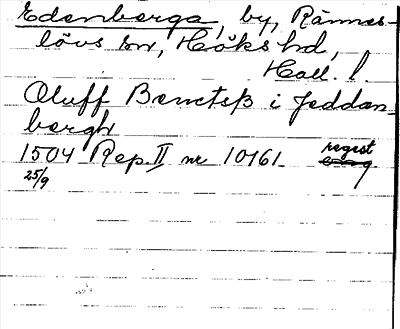 Edenberga, by, Rännes-
lövs sn, Höks hd,
Hall. l.
Oluff Benctsß i Jeddan-
bergh
1504 Rep. II nr 10161 regest
25/9